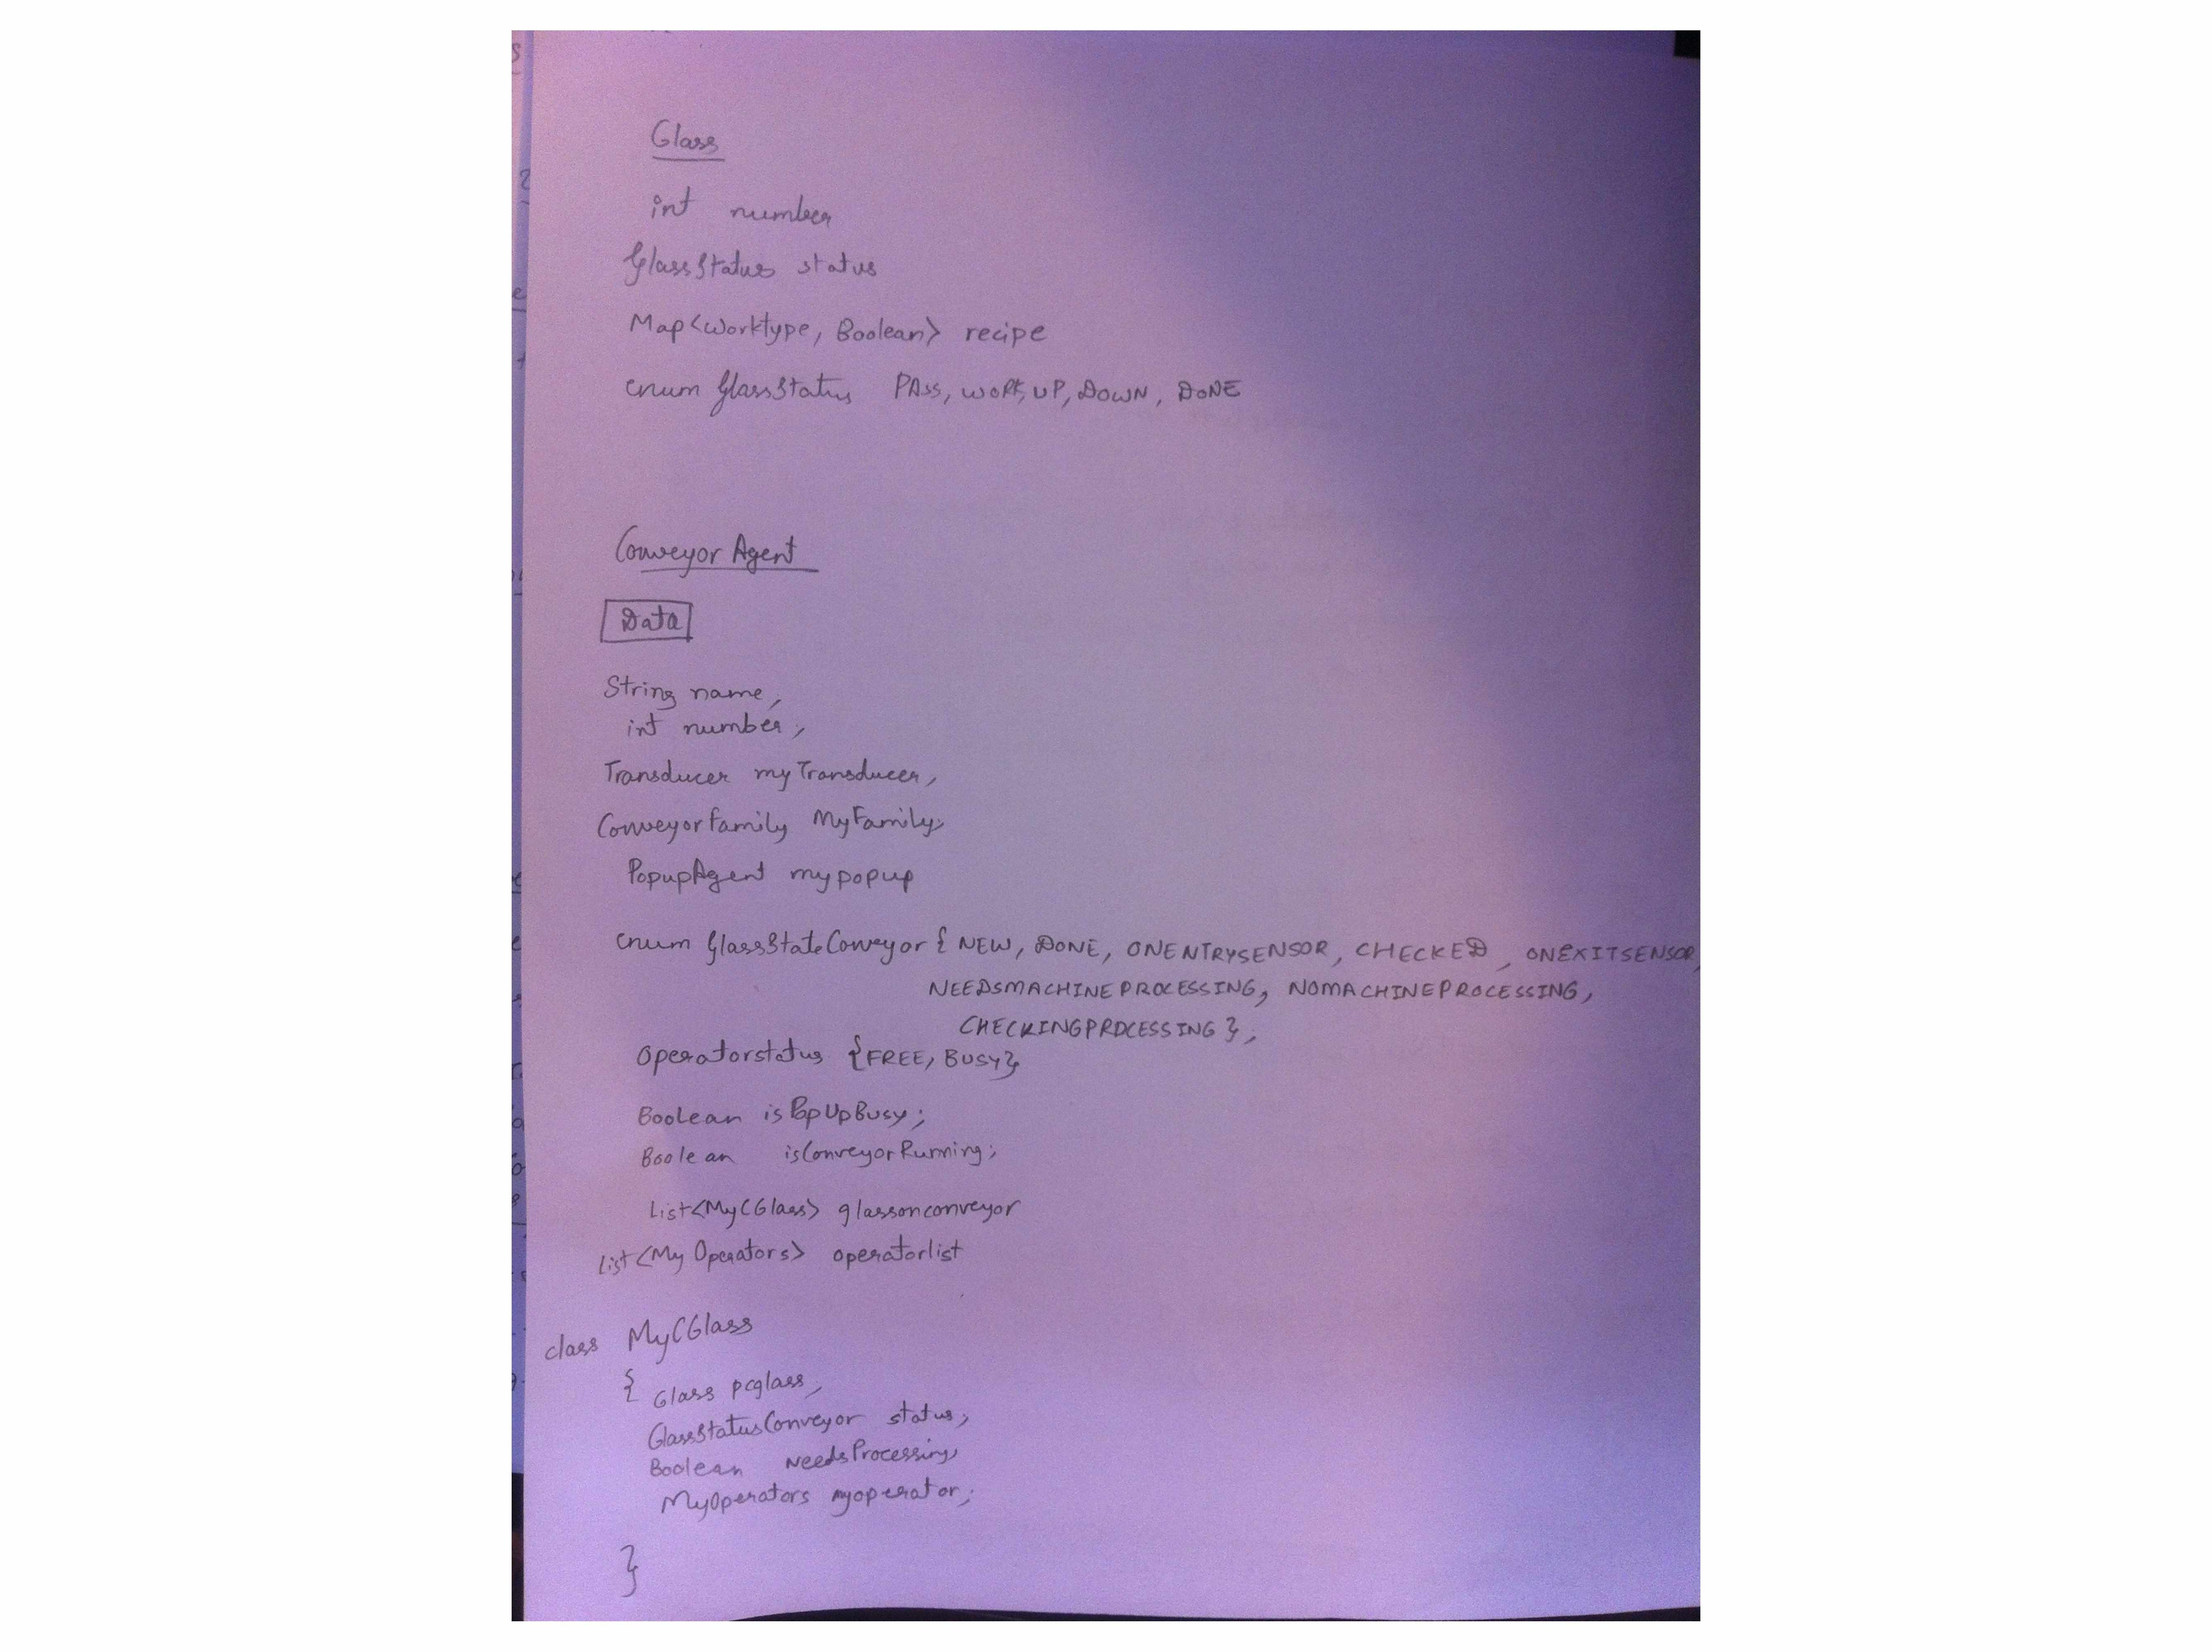 Glass
int number
GlassStatus status
Map<Worktype, Boolean> recipe
enum GlassStatus PASS, WORK, UP, DOWN, DONE
Conveyor Agent
Data
String name,
int number,
Transducer myTransducer,
ConveyorFamily MyFamily;
PopupAgent mypopup
enum GlassStateConveyor { NEW, DONE, ONENTRYSENSOR, CHECKED, ONEXITSENSOR,
NEEDSMACHINEPROCESSING, NOMACHINEPROCESSING,
CHECKINGPROCESSING },
Operatorstatus {FREE, BUSY}
Boolean isPopUpBusy;
Boolean isConveyorRunning;
List<MyCGlass> glassonconveyor
List<My Operators> operatorlist
class MyCGlass
{ Glass pcglass,
GlassStatusConveyor status;
Boolean NeedsProcessing
MyOperators myoperator;
}